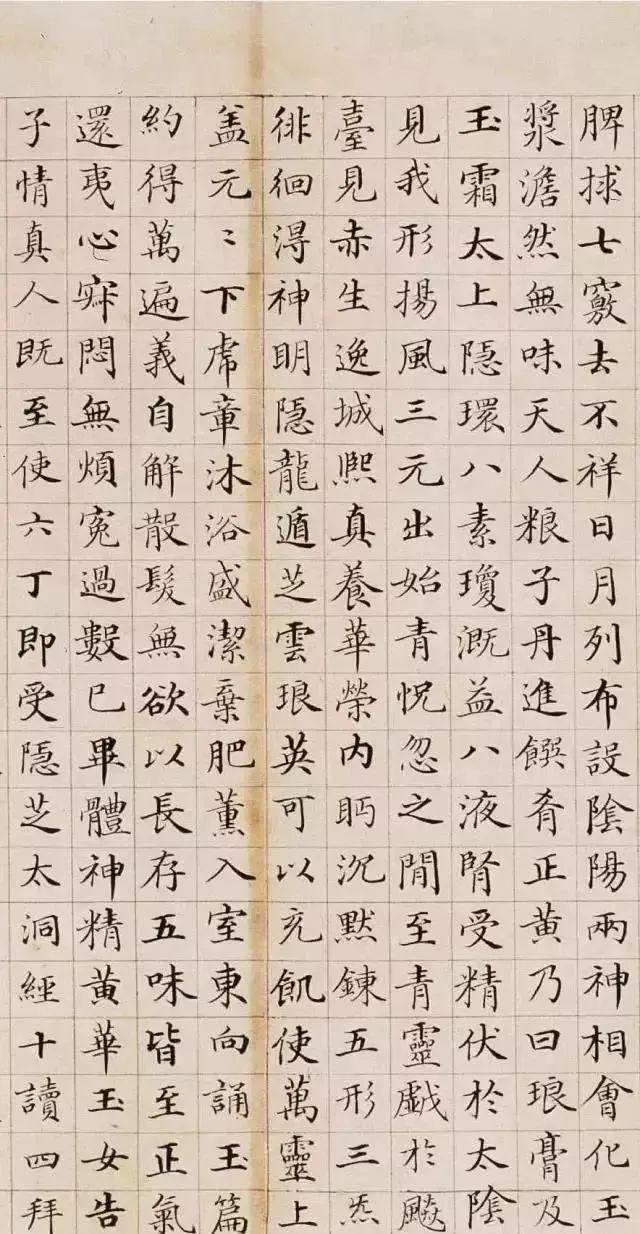 脾捄七竅去不祥日月列布設陰陽兩神相會化玉
漿澹然無味天人粮子丹進饌肴正黄乃曰琅膏及
玉霜太上隱環八素瓊溉益八液腎受精伏於太陰
見我形揚風三元出始青怳忽之閒至青靈戯於飈
臺見赤生逸域熙真養華榮内眄沉默鍊五形三炁
徘徊得神眀隱龍遁芝雲琅英可以充飢使萬靈上
盖元〻下虎章沐浴盛潔棄肥薰入室東向誦玉篇
約得萬遍義自解散髮無欲以長存五味皆至正氣
還夷心寂悶無煩寃過數已畢體神精黄華玉女告
子情真人既至使六丁即受隱芝太洞經十讀四拜